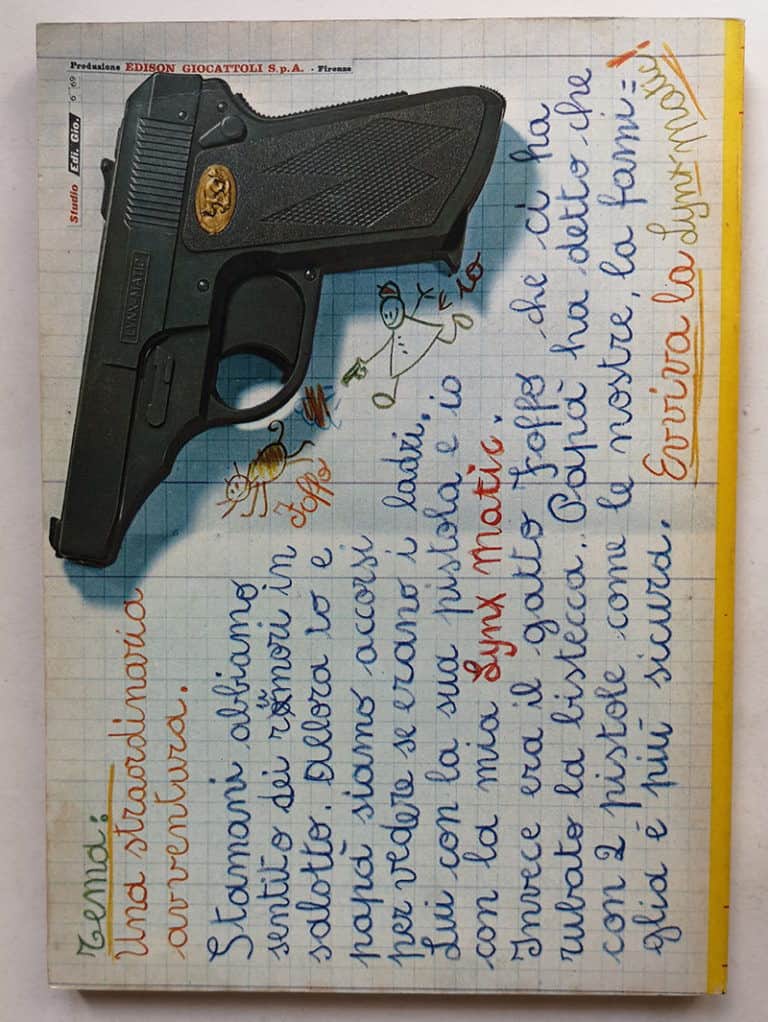 Produzione EDISON GIOCATTOLI S.p.A. - Firenze
Studio Edi. Gio. 6 '69
LYNX-MATIC
Tema:
Una straordinaria
avventura.
Stamani abbiamo
sentito dei rumori in
salotto. Allora io e
papà siamo accorsi
per vedere se erano i ladri.
Lui con la sua pistola e io
con la mia Lynx Matic.
Invece era il gatto Foffo che ci ha
rubato la bistecca. Papà ha detto che
con 2 pistole come le nostre, la fami=
glia è più sicura. Evviva la Lynx Matic!
Foffo
io